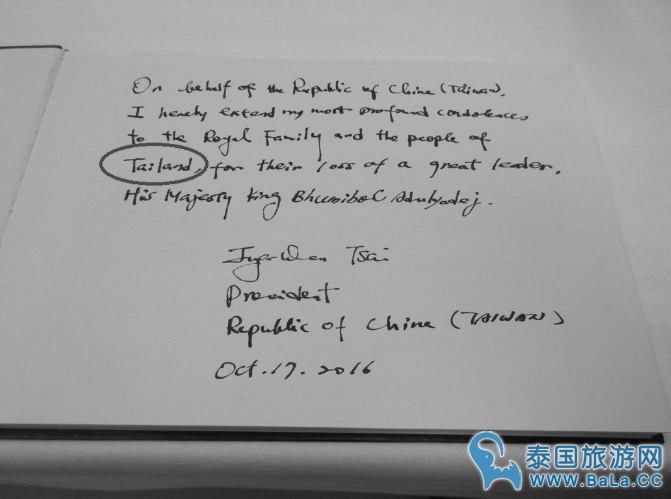 On behalf of the Republic of China (Taiwan),
I hereby extend my most profound condolences
to the Royal Family and the people of
Tailand, for their loss of a great leader,
His Majesty King Bhumibol Adulyadej.
Ing-Wen Tsai
President
Republic of China (TAIWAN)
Oct.17.2016
泰国旅游网
www.BaLa.cc